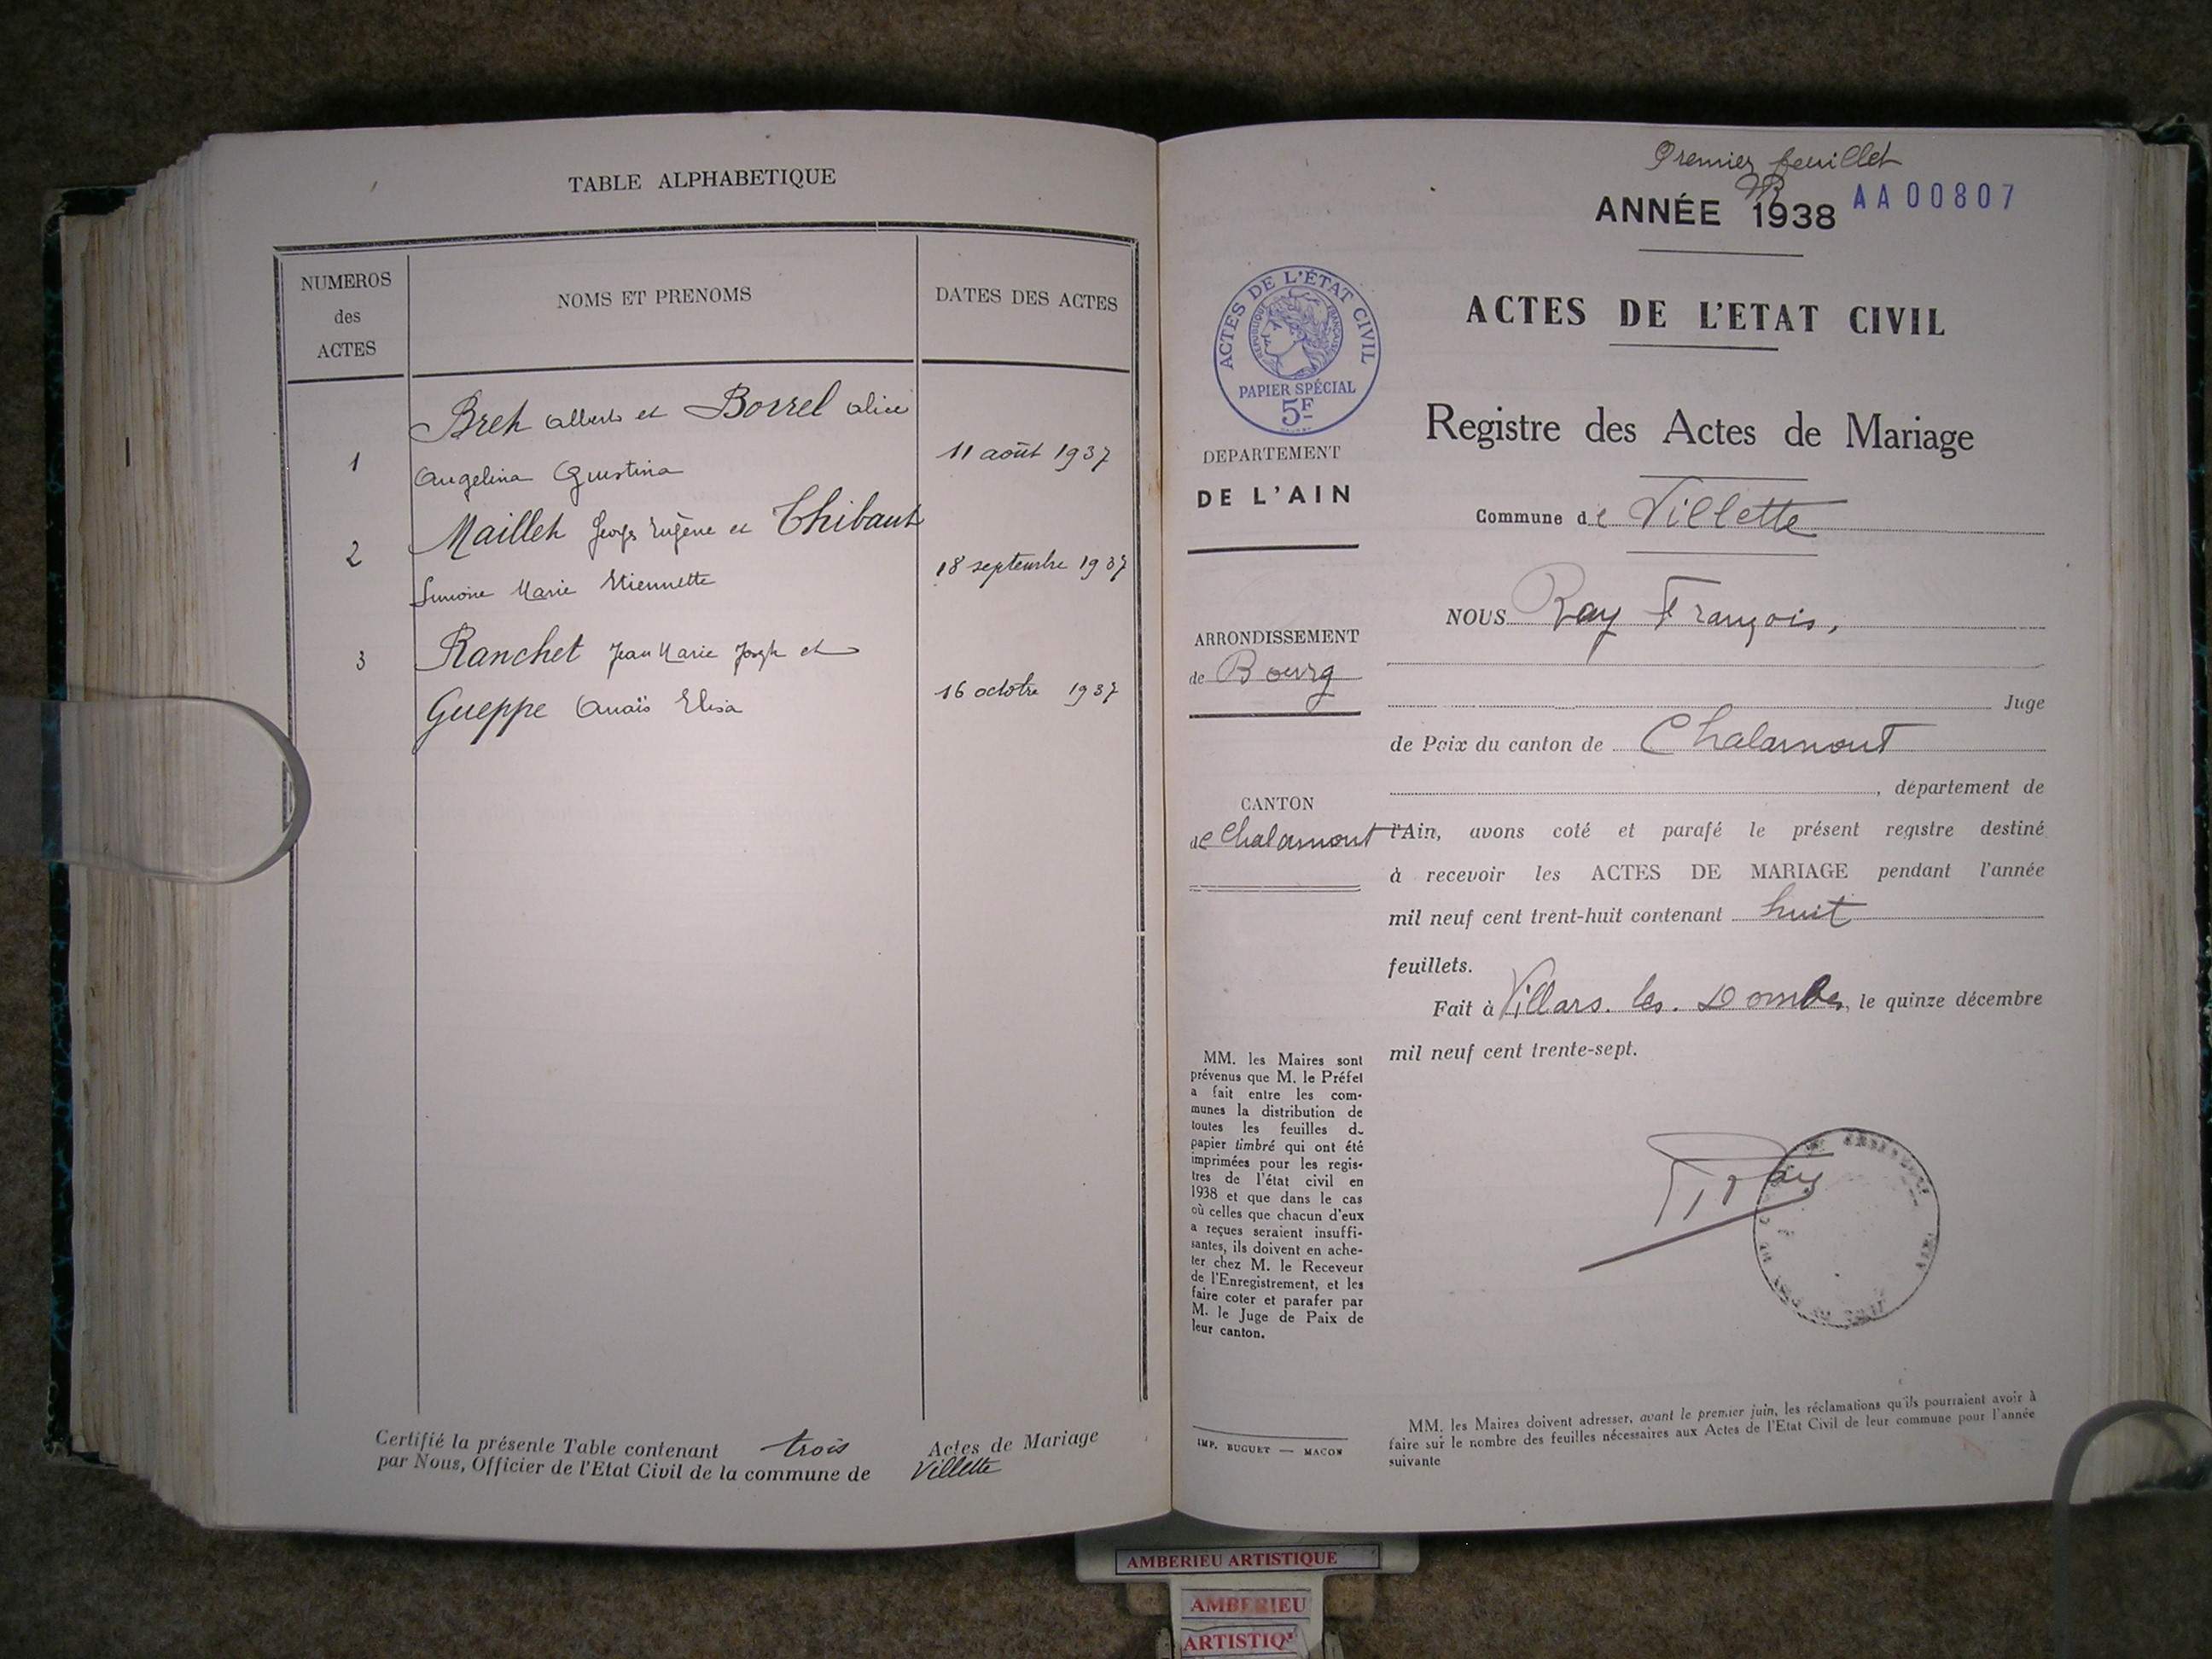 TABLE ALPHABETIQUE
NUMEROS
des
ACTES
NOMS ET PRENOMS
DATES DES ACTES
1
Breh Albert et Borrel Alice
Angelina Giustina
11 août 1937
2
Maillet Georges Eugène et Thibaut
Simone Marie Etiennette
18 septembre 1937
3
Ranchet Jean Marie Joseph et
Gueppe Anaïs Elisa
16 octobre 1937
Certifié la présente Table contenant trois Actes de Mariage
par Nous, Officier de l'Etat Civil de la commune de Villette
Premier feuillet
ANNÉE 1938
AA00807
ACTES DE L'ÉTAT CIVIL
REPUBLIQUE FRANÇAISE
PAPIER SPÉCIAL
5F
DEPARTEMENT
DE L'AIN
ARRONDISSEMENT
de Bourg
CANTON
de Chalamont
MM. les Maires sont
prévenus que M. le Préfet
a fait entre les com-
munes la distribution de
toutes les feuilles de
papier timbré qui ont été
imprimées pour les regis-
tres de l'état civil en
1938 et que dans le cas
où celles que chacun d'eux
a reçues seraient insuffi-
santes, ils doivent en ache-
ter chez M. le Receveur
de l'Enregistrement, et les
faire coter et parafer par
M. le Juge de Paix de
leur canton.
IMP. BUGUET — MACON
ACTES DE L'ETAT CIVIL
Registre des Actes de Mariage
Commune de Villette
NOUS Ray François,
Juge
de Paix du canton de Chalamont
, département de
l'Ain, avons coté et parafé le présent registre destiné
à recevoir les ACTES DE MARIAGE pendant l'année
mil neuf cent trent-huit contenant huit
feuillets.
Fait à Villars. les. Dombes, le quinze décembre
mil neuf cent trente-sept.
Ray
MM. les Maires doivent adresser, avant le premier juin, les réclamations qu'ils pourraient avoir à
faire sur le nombre des feuilles nécessaires aux Actes de l'Etat Civil de leur commune pour l'année
suivante
AMBERIEU ARTISTIQUE
AMBERIEU
ARTISTIQ